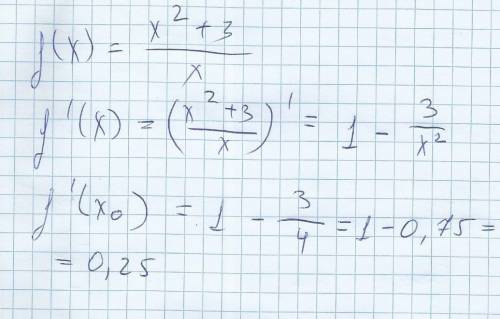 f(x) = (x² + 3)/x
f'(x) = ((x² + 3)/x)' = 1 - 3/x²
f'(x₀) = 1 - 3/4 = 1 - 0,75 =
= 0,25